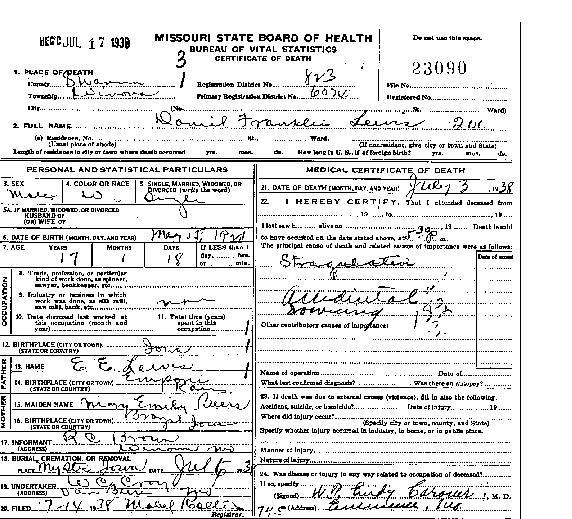 REC'D JUL 17 1938
MISSOURI STATE BOARD OF HEALTH
BUREAU OF VITAL STATISTICS
CERTIFICATE OF DEATH
Do not use this space.
3
1
1. PLACE OF DEATH
County
Township Winona
City
Registration District No. 823
Primary Registration District No.
(No. St. Ward)
23090
File No.
Registered No.
2. FULL NAME Daniel Franklin Lewis
(a) Residence, No. St. Ward.
(Usual place of abode) (If nonresident, give city or town and State)
Length of residence in city or town where death occurred yrs. mos. ds. How long in U. S., if of foreign birth? yrs. mos. ds.
PERSONAL AND STATISTICAL PARTICULARS
3. SEX
Male
4. COLOR OR RACE
W.
5. SINGLE, MARRIED, WIDOWED, OR DIVORCED (write the word)
Single
5A. IF MARRIED, WIDOWED, OR DIVORCED
HUSBAND OF
(OR) WIFE OF
6. DATE OF BIRTH (MONTH, DAY, AND YEAR) May 15
7. AGE YEARS MONTHS DAYS If LESS than 1 day, hrs. or min.
17 1 18
OCCUPATION
8. Trade, profession, or particular kind of work done, as spinner, sawyer, bookkeeper, etc.
9. Industry or business in which work was done, as silk mill, saw mill, bank, etc.
10. Date deceased last worked at this occupation (month and year)
11. Total time (years) spent in this occupation
12. BIRTHPLACE (CITY OR TOWN)
(STATE OR COUNTRY)
Iowa
FATHER
13. NAME E. E. Lewis
14. BIRTHPLACE (CITY OR TOWN)
(STATE OR COUNTRY)
MOTHER
15. MAIDEN NAME Mary Emily
16. BIRTHPLACE (CITY OR TOWN)
(STATE OR COUNTRY)
Iowa
17. INFORMANT Brown
(ADDRESS) Winona Mo
18. BURIAL, CREMATION, OR REMOVAL
PLACE Mystic Iowa DATE Jul 6 1938
19. UNDERTAKER
(ADDRESS) Van Buren Mo
20. FILED 7-14 1938 Mabel
Registrar.
MEDICAL CERTIFICATE OF DEATH
21. DATE OF DEATH (MONTH, DAY, AND YEAR) July 3 1938
22. I HEREBY CERTIFY, That I attended deceased from
19 to 19
I last saw h alive on 19 Death is said
to have occurred on the date stated above, at m.
The principal cause of death and related causes of importance were as follows:
Date of onset
Strangulation
Accidental
Drowning
Other contributory causes of importance:
Name of operation Date of
What test confirmed diagnosis? Was there an autopsy?
23. If death was due to external causes (violence), fill in also the following:
Accident, suicide, or homicide? Date of injury 19
Where did injury occur?
(Specify city or town, county, and State)
Specify whether injury occurred in industry, in home, or in public place.
Manner of injury
Nature of injury
24. Was disease or injury in any way related to occupation of deceased?
If so, specify
(Signed) Coroner, M. D.
(Address) Eminence, Mo